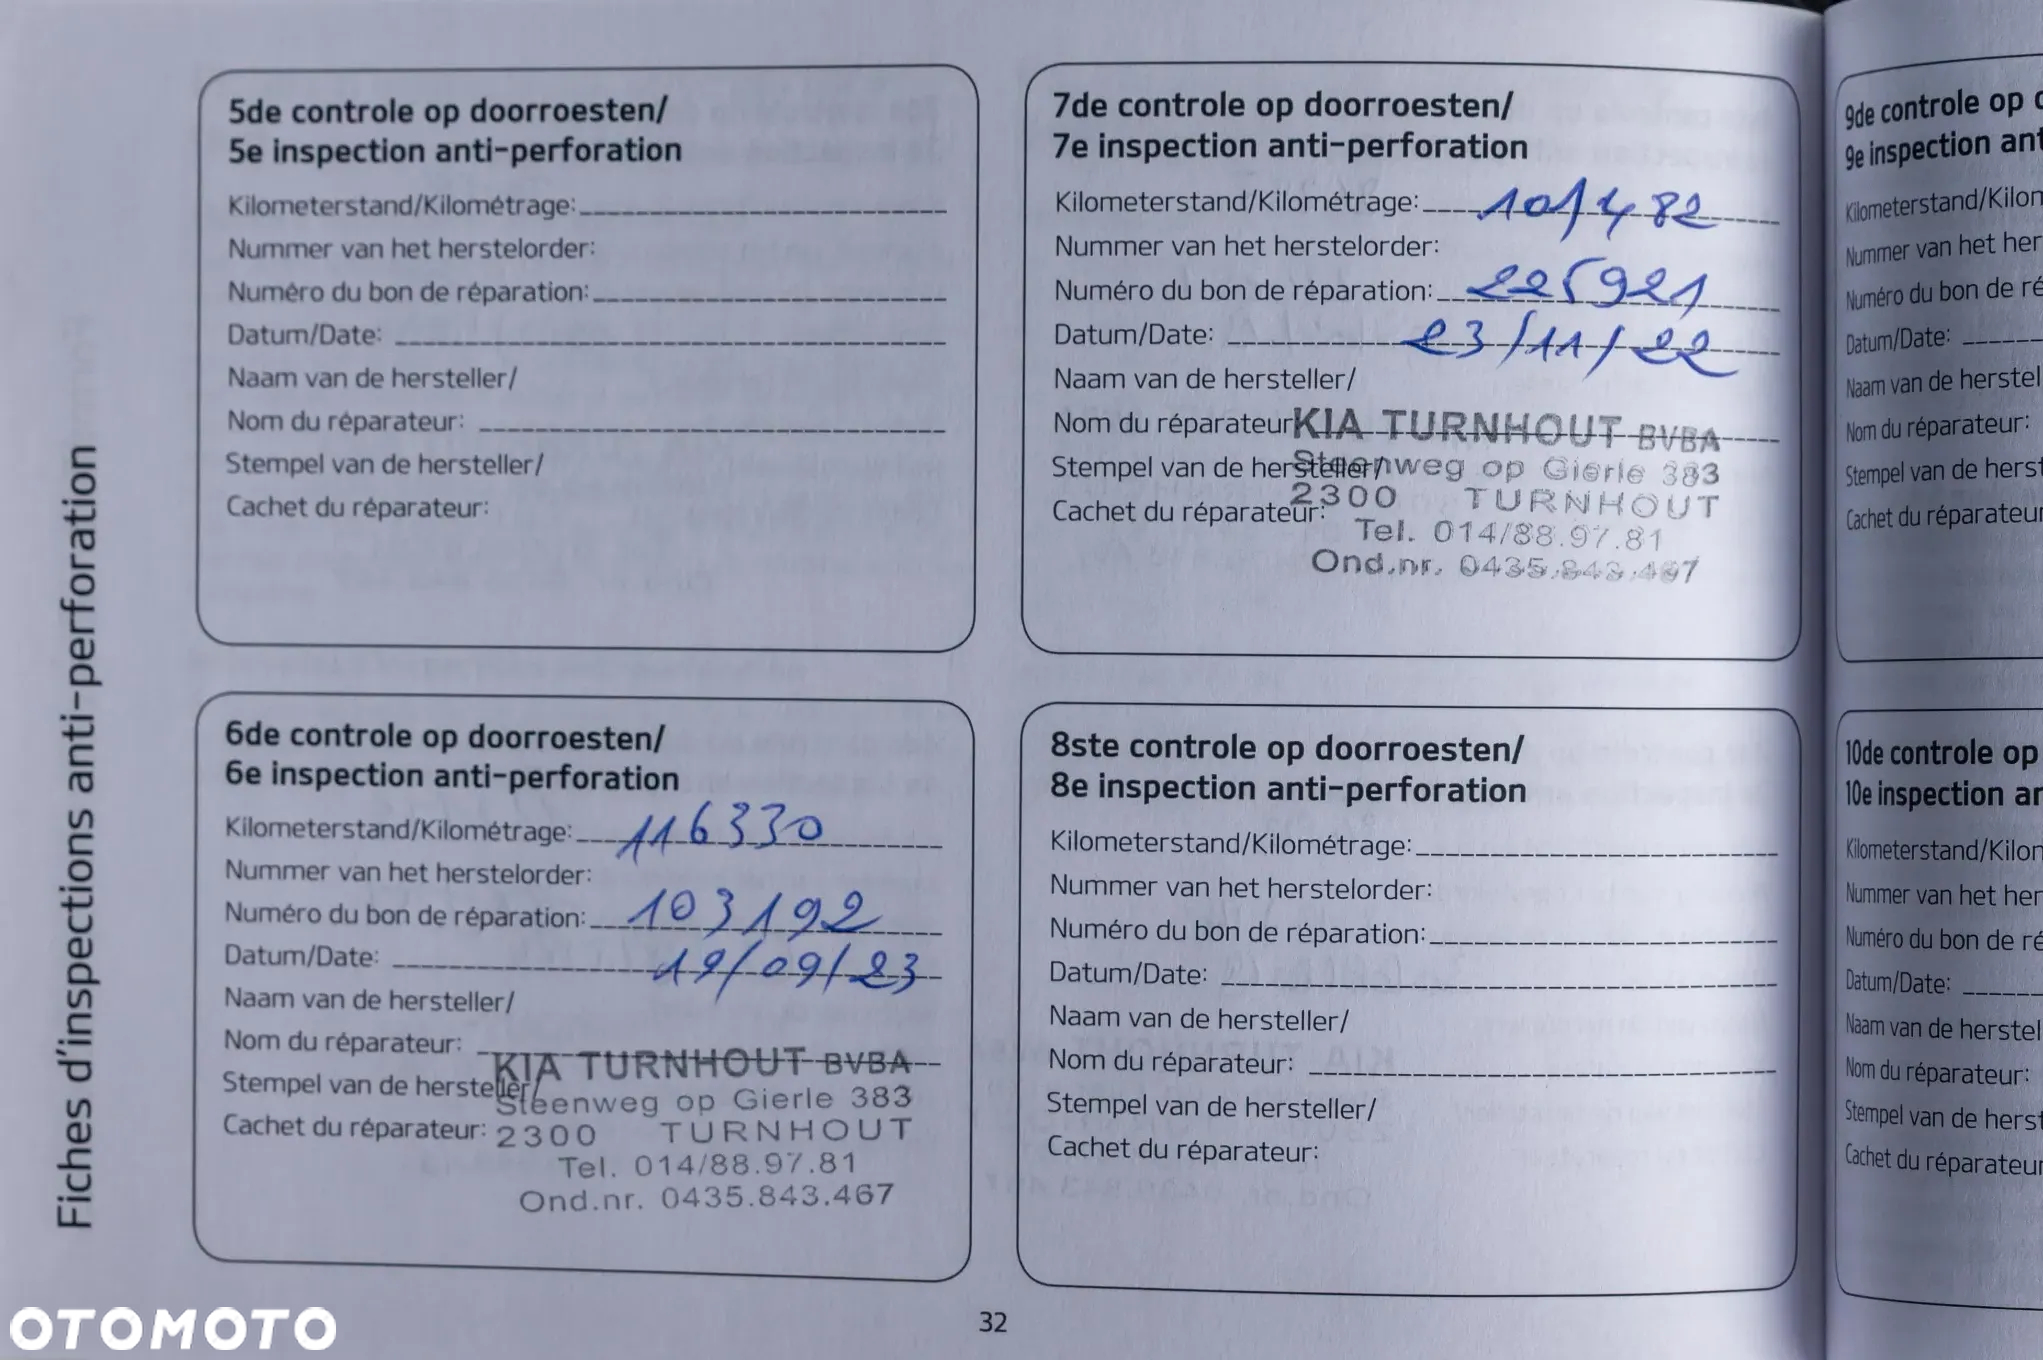 Fiches d'inspections anti-perforation
5de controle op doorroesten/
5e inspection anti-perforation
Kilometerstand/Kilométrage:
Nummer van het herstelorder:
Numéro du bon de réparation:
Datum/Date:
Naam van de hersteller/
Nom du réparateur:
Stempel van de hersteller/
Cachet du réparateur:
6de controle op doorroesten/
6e inspection anti-perforation
Kilometerstand/Kilométrage: 116330
Nummer van het herstelorder:
Numéro du bon de réparation: 103192
Datum/Date: 19/09/23
Naam van de hersteller/
Nom du réparateur:
KIA TURNHOUT BVBA
Stempel van de hersteller/
Steenweg op Gierle 383
Cachet du réparateur:
2300 TURNHOUT
Tel. 014/88.97.81
Ond.nr. 0435.843.467
7de controle op doorroesten/
7e inspection anti-perforation
Kilometerstand/Kilométrage: 101482
Nummer van het herstelorder:
Numéro du bon de réparation: 225921
Datum/Date: 23/11/22
Naam van de hersteller/
Nom du réparateur
KIA TURNHOUT BVBA
Stempel van de hersteller/
Steenweg op Gierle 383
Cachet du réparateur:
2300 TURNHOUT
Tel. 014/88.97.81
Ond.nr. 0435.843.467
8ste controle op doorroesten/
8e inspection anti-perforation
Kilometerstand/Kilométrage:
Nummer van het herstelorder:
Numéro du bon de réparation:
Datum/Date:
Naam van de hersteller/
Nom du réparateur:
Stempel van de hersteller/
Cachet du réparateur:
9de controle op
9e inspection
Kilometerstand/
Nummer van het
Numéro du bon de
Datum/Date:
Naam van de
Nom du réparateur:
Stempel van de
Cachet du réparateur
10de controle op
10e inspection
Kilometerstand/
Nummer van het
Numéro du bon de
Datum/Date:
Naam van de
Nom du réparateur:
Stempel van de
Cachet du réparateur
32
OTOMOTO